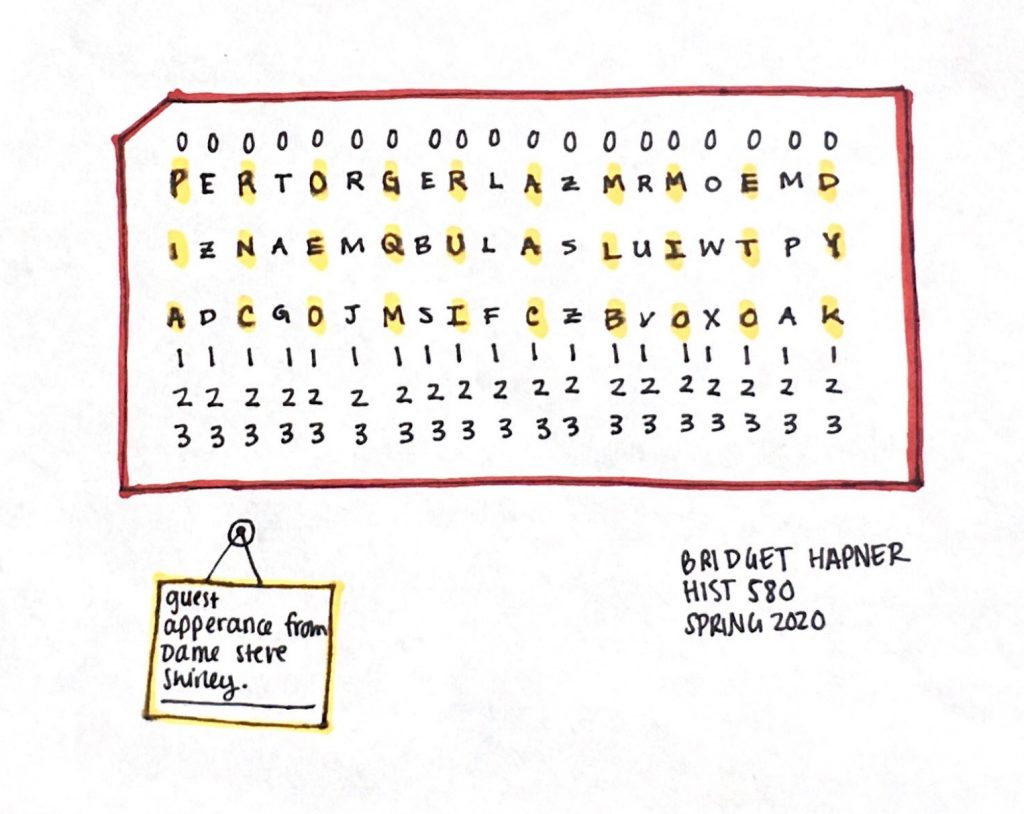 0 0 0 0 0 0 0 0 0 0 0 0 0 0 0 0 0 0 0
P E R T O R G E R L A Z M R M O E M D
I Z N A E M Q B U L A S L U I W T P Y
A D C G O J M S I F C Z B V O X O A K
1 1 1 1 1 1 1 1 1 1 1 1 1 1 1 1 1 1 1
2 2 2 2 2 2 2 2 2 2 2 2 2 2 2 2 2 2 2
3 3 3 3 3 3 3 3 3 3 3 3 3 3 3 3 3 3 3
guest
apperance from
Dame Steve
Shirley.
BRIDGET HAPNER
HIST 580
SPRING 2020